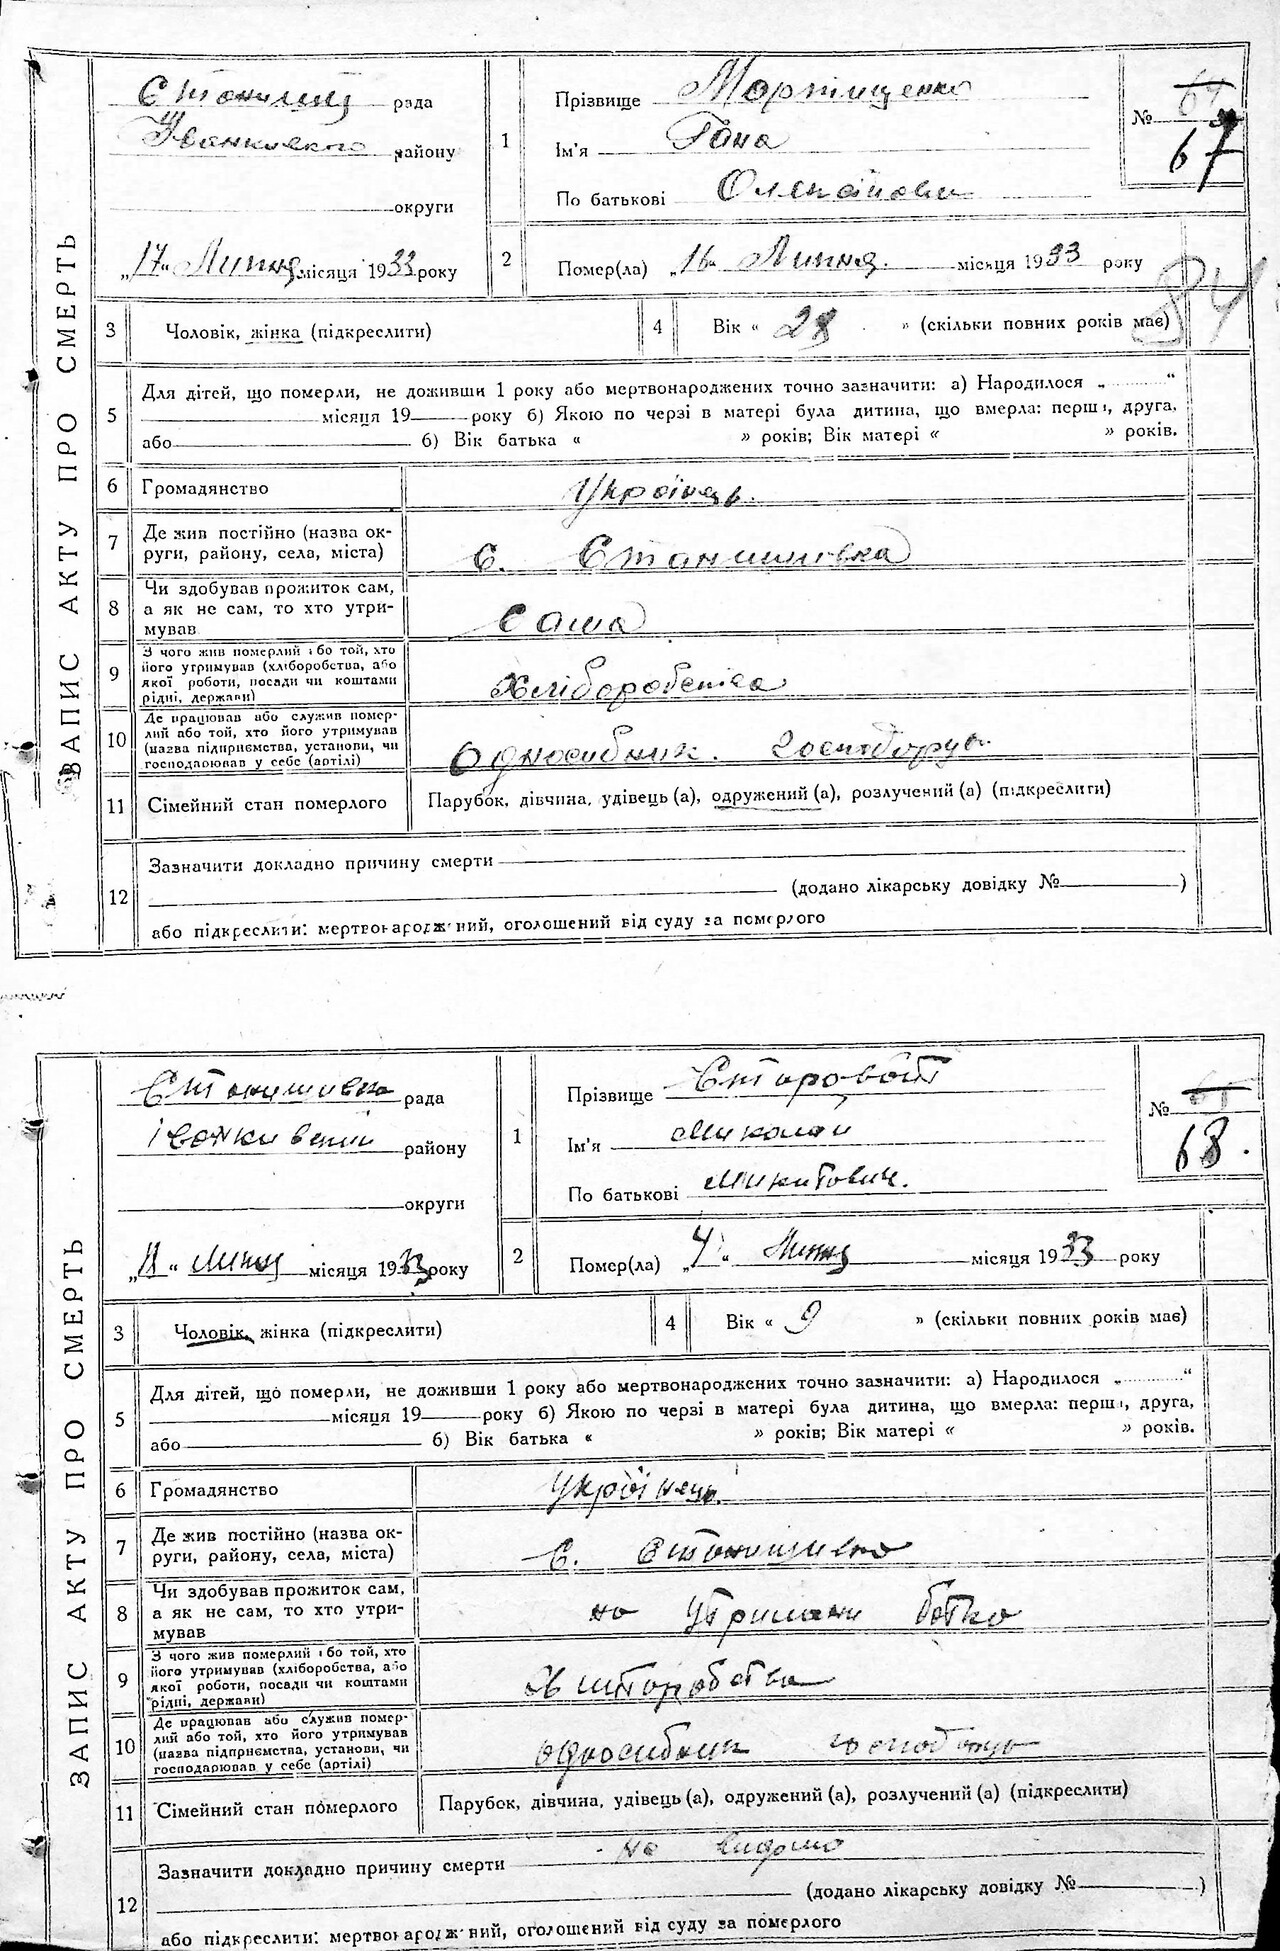 ЗАПИС АКТУ ПРО СМЕРТЬ
рада
району
округи
„17“ Липня місяця 1933 року
1
Прізвище Мартищенко
Ім'я Гана
По батькові
№ 64
67
2
Помер(ла) „16“ Липня місяця 1933 року
84
3
Чоловік, жінка (підкреслити)
4
Вік « 28 » (скільки повних років має)
5
Для дітей, що померли, не доживши 1 року або мертвонароджених точно зазначити: а) Народилося „ “
місяця 19 року б) Якою по черзі в матері була дитина, що вмерла: перша, друга,
або б) Вік батька « » років; Вік матері « » років.
6
Громадянство Українець.
7
Де жив постійно (назва ок-
руги, району, села, міста)
с. Станишівка
8
Чи здобував прожиток сам,
а як не сам, то хто утри-
мував
Сама
9
З чого жив померлий або той, хто
його утримував (хліборобства, або
якої роботи, посади чи коштами
рідні, держави)
Хліборобства
10
Де працював або служив помер-
лий або той, хто його утримував
(назва підприємства, установи, чи
господарював у себе (артілі)
Односибник.
11
Сімейний стан померлого
Парубок, дівчина, удівець (а), одружений (а), розлучений (а) (підкреслити)
12
Зазначити докладно причину смерти
(додано лікарську довідку № )
або підкреслити: мертвонароджений, оголошений від суду за померлого
ЗАПИС АКТУ ПРО СМЕРТЬ
Станишивка рада
району
округи
Липня місяця 1933 року
1
Прізвище Старовойт
Ім'я Миколай
По батькові Микитович.
№
68.
2
Помер(ла) „4“ Липня місяця 1933 року
3
Чоловік, жінка (підкреслити)
4
Вік « 9 » (скільки повних років має)
5
Для дітей, що померли, не доживши 1 року або мертвонароджених точно зазначити: а) Народилося „ “
місяця 19 року б) Якою по черзі в матері була дитина, що вмерла: перша, друга,
або б) Вік батька « » років; Вік матері « » років.
6
Громадянство Українець.
7
Де жив постійно (назва ок-
руги, району, села, міста)
с. Станишивка
8
Чи здобував прожиток сам,
а як не сам, то хто утри-
мував
на утримани батка
9
З чого жив померлий або той, хто
його утримував (хліборобства, або
якої роботи, посади чи коштами
рідні, держави)
10
Де працював або служив помер-
лий або той, хто його утримував
(назва підприємства, установи, чи
господарював у себе (артілі)
односибник
11
Сімейний стан померлого
Парубок, дівчина, удівець (а), одружений (а), розлучений (а) (підкреслити)
12
Зазначити докладно причину смерти не видомо
(додано лікарську довідку № )
або підкреслити: мертвонароджений, оголошений від суду за померлого